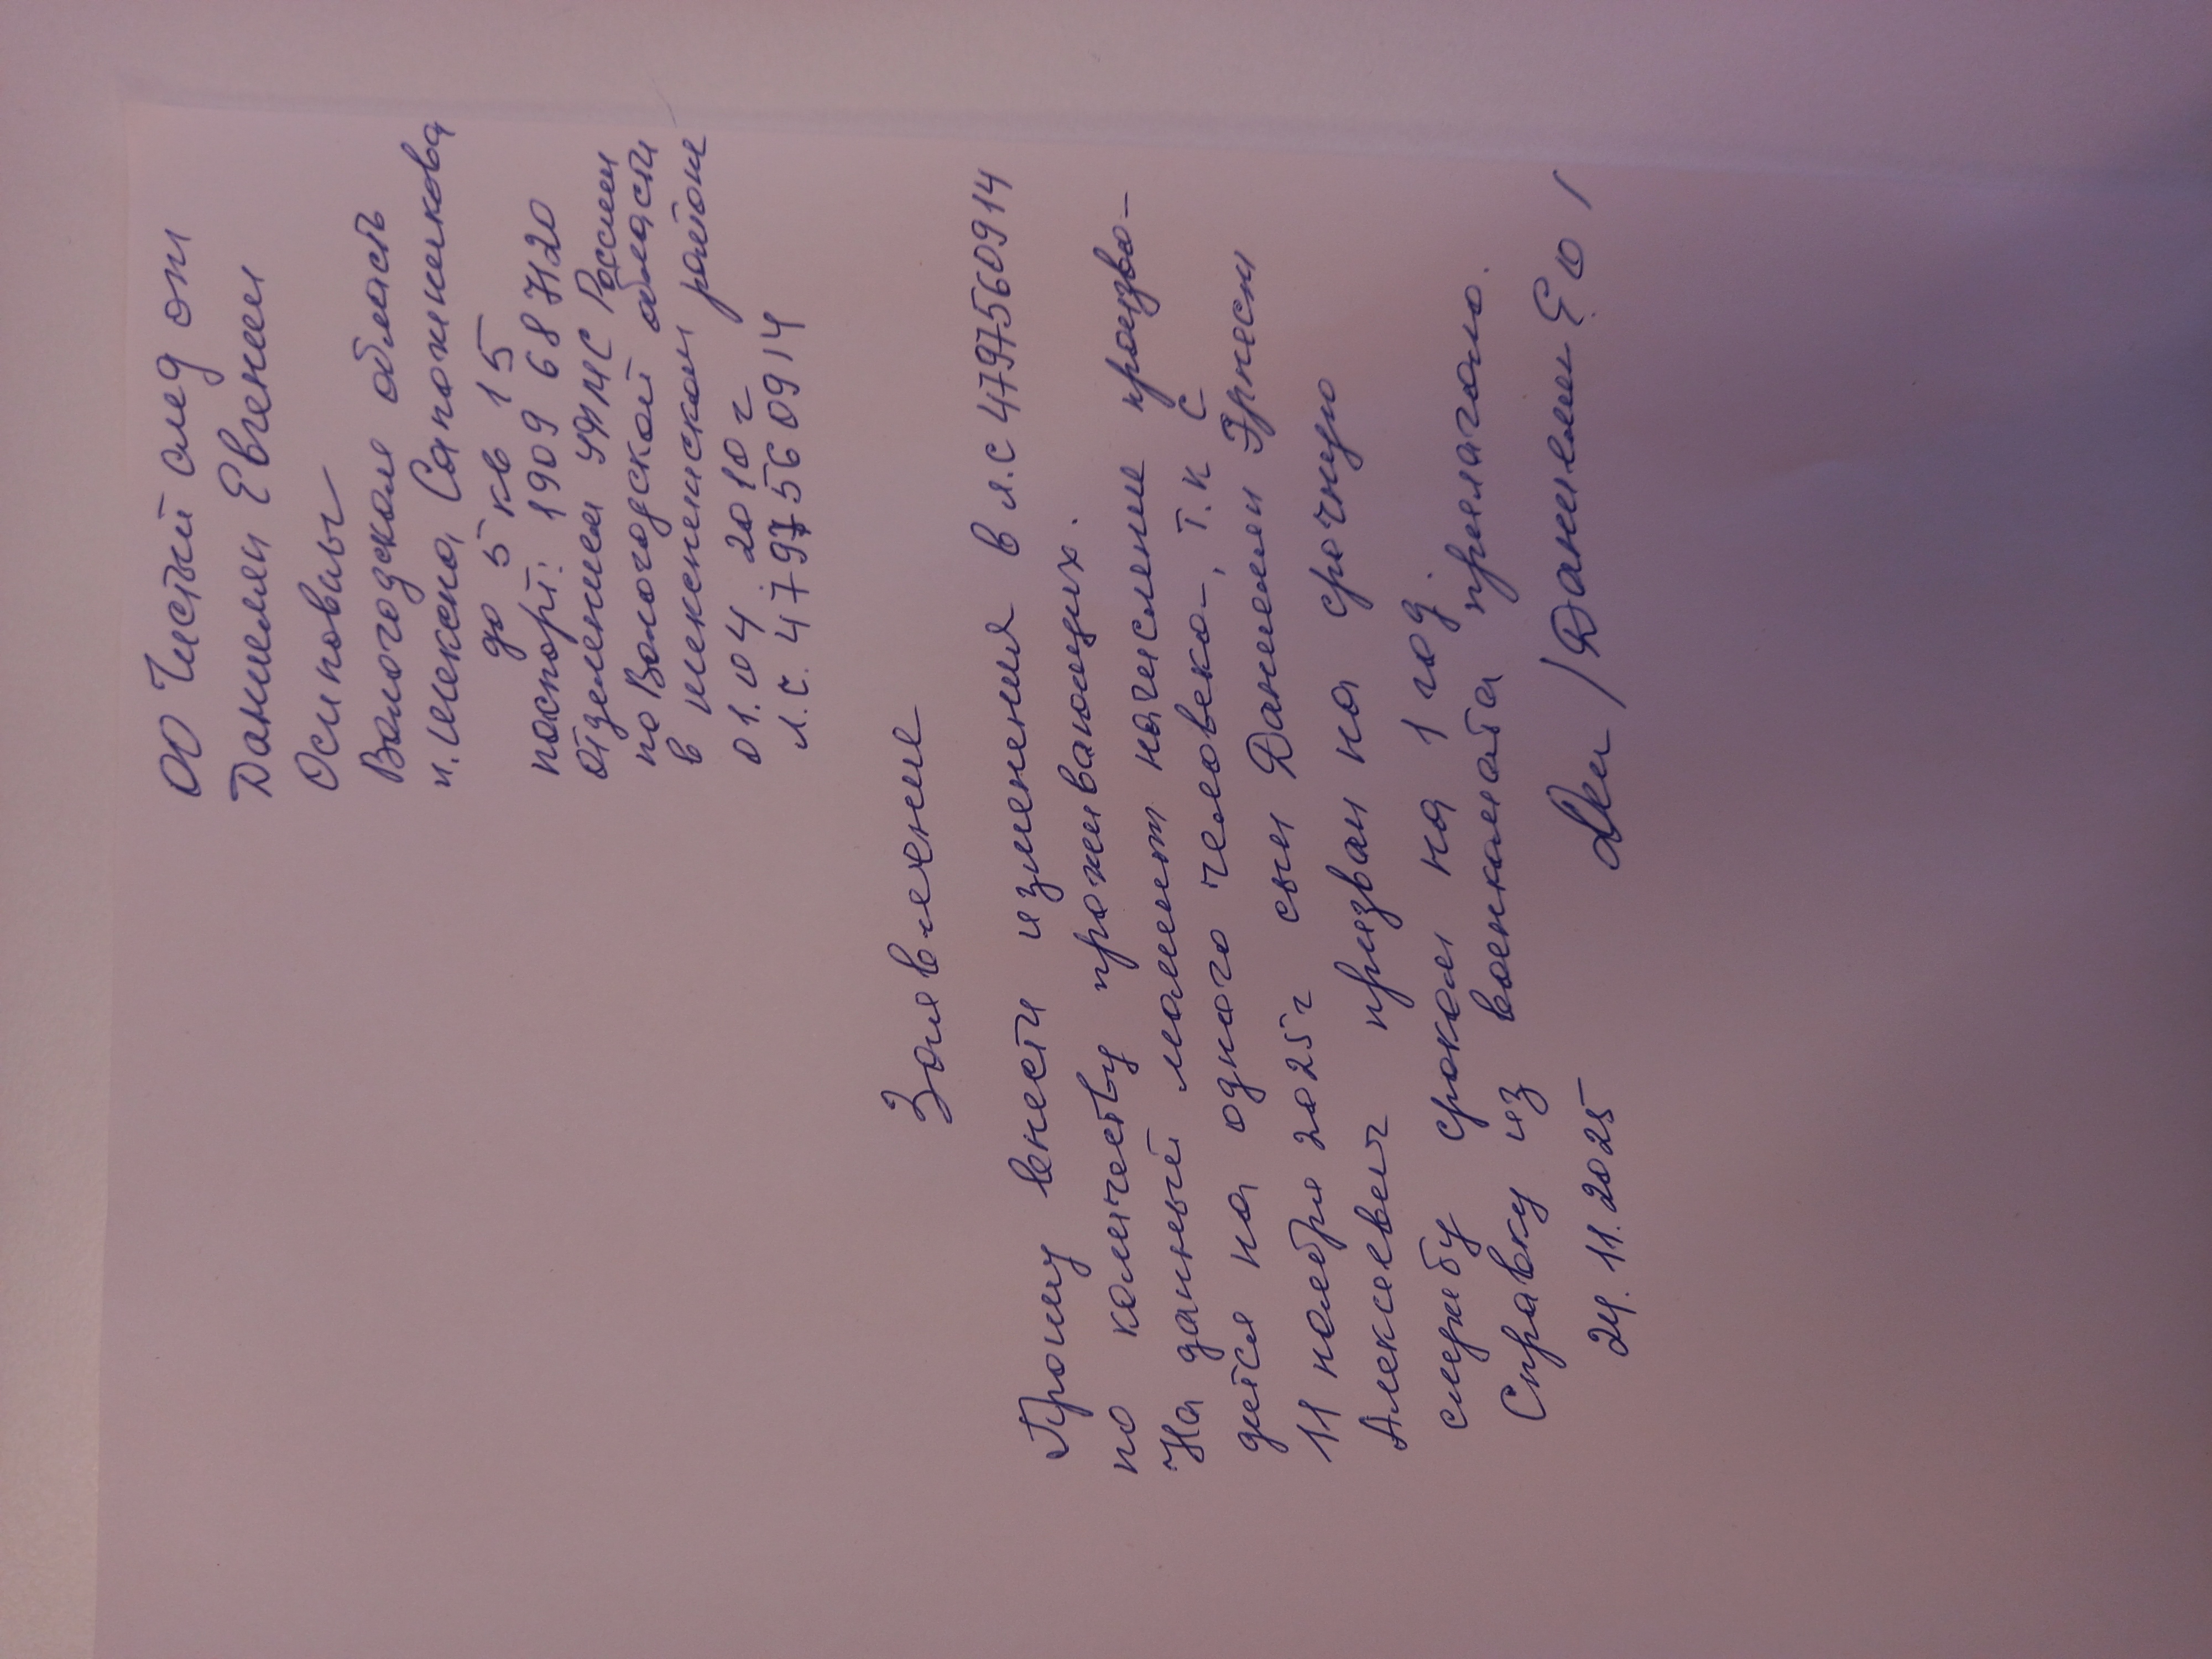 ОО Чистый след от
Даниелян Евгении
Осиповны
Вологодская область
п. Шексна, Сапожникова
до 5 кв 15
паспорт: 1909 687120
Отделением УФМС России
по Вологодской области
в Шекснинском районе
01.04 2010 г
л.с. 4797560914
Заявление
Прошу внести изменения в л.с 4797560914
по количеству проживающих.
На данный момент начисление произво-
дится на одного человека, т.к с
11 ноября 2025г сын Даниелян Эрнест
Алексеевич призван на срочную
службу сроком на 1 год.
Справку из военкомата прилагаю.
24.11.2025 /Даниелян ЕО/